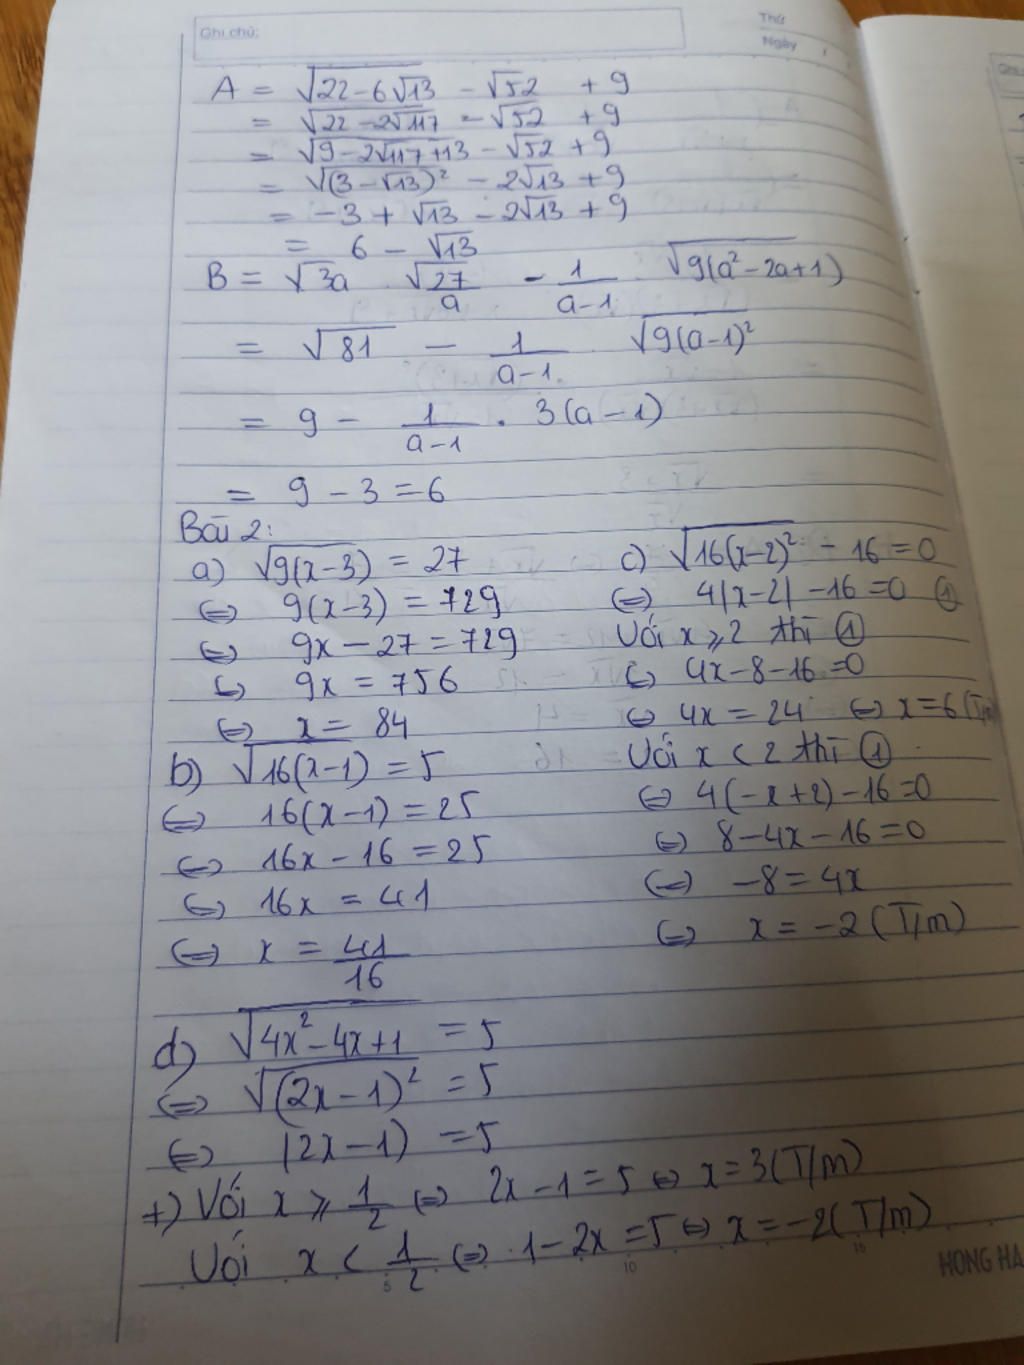 Ghi chú:
Thứ
Ngày / /
A = √(22-6√13) - √52 + 9
= √(22-2√117) - √52 + 9
= √(9-2√117+13) - √52 + 9
= √((3-√13)²) - 2√13 + 9
= -3 + √13 - 2√13 + 9
= 6 - √13
B = √3a √(27/a) - 1/(a-1) √(9(a²-2a+1))
= √81 - 1/(a-1) √(9(a-1)²)
= 9 - 1/(a-1) . 3(a-1)
= 9 - 3 = 6
Bài 2:
a) √(9(x-3)) = 27
⇔ 9(x-3) = 729
⇔ 9x - 27 = 729
⇔ 9x = 756
⇔ x = 84
b) √(16(x-1)) = 5
⇔ 16(x-1) = 25
⇔ 16x - 16 = 25
⇔ 16x = 41
⇔ x = 41/16
c) √(16(x-2)²) - 16 = 0
⇔ 4|x-2| - 16 = 0 ①
Với x ⩾ 2 thì ①
⇔ 4x - 8 - 16 = 0
⇔ 4x = 24 ⇔ x = 6 (T/m
Với x < 2 thì ①
⇔ 4(-x+2) - 16 = 0
⇔ 8 - 4x - 16 = 0
⇔ -8 = 4x
⇔ x = -2 (T/m)
d) √(4x²-4x+1) = 5
⇔ √((2x-1)²) = 5
⇔ |2x-1) = 5
+) Với x ⩾ 1/2 ⇔ 2x - 1 = 5 ⇔ x = 3 (T/m)
Với x < 1/2 ⇔ 1 - 2x = 5 ⇔ x = -2 (T/m)
5 10 15
HONG HA